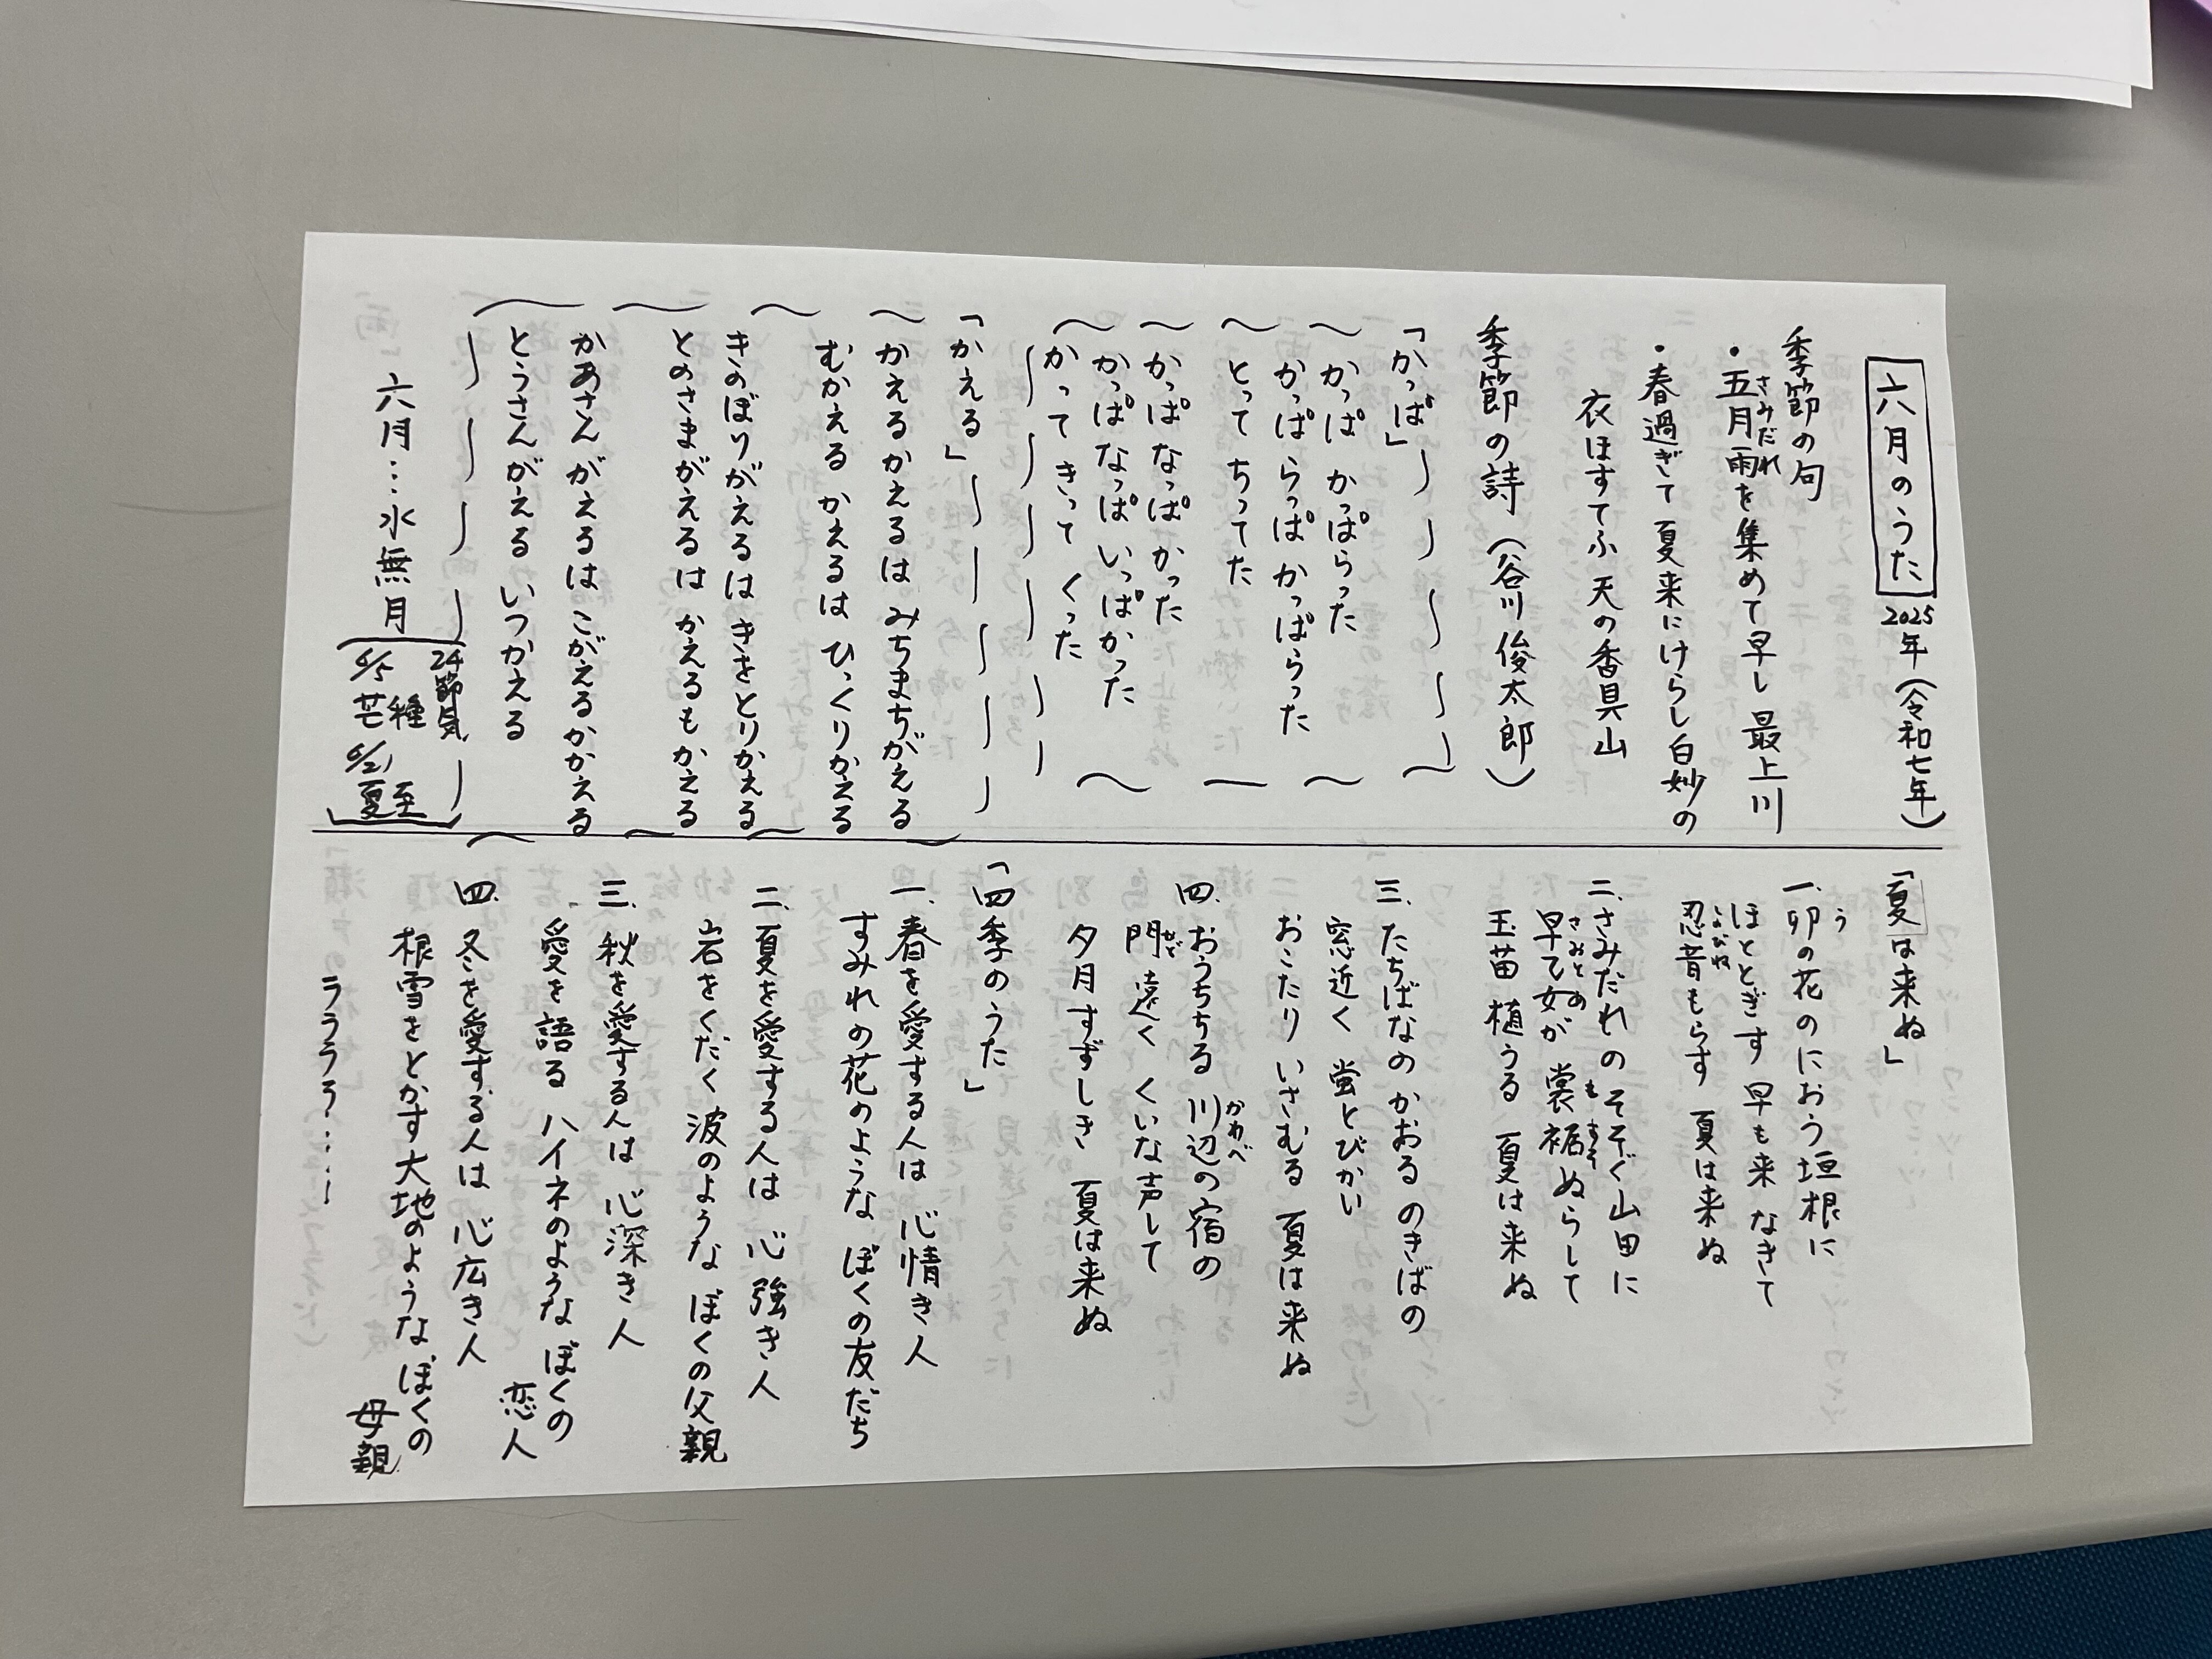 六月のうた 2025年(令和七年)
季節の句
・五月雨を集めて早し 最上川
さみだれ
・春過ぎて 夏来にけらし 白妙の
衣ほすてふ 天の香具山
季節の詩 (谷川俊太郎)
「かっぱ」
かっぱ かっぱらった
かっぱ らっぱ かっぱらった
とって ちってた
かっぱ なっぱ かった
かっぱ なっぱ いっぱ かった
かって きって くった
「かえる」
かえるかえるは みちまちがえる
むかえる かえるは ひっくりかえる
きのぼりがえるは きをとりかえる
とのさまがえるは かえるもかえる
かあさんがえるは こがえるかかえる
とうさんがえる いつかえる
六月…水無月
24節気
6/5 芒種
6/21 夏至
「夏は来ぬ」
一、卯の花のにおう垣根に
う
ほととぎす 早も来 なきて
忍音もらす 夏は来ぬ
しのびね
二、さみだれの そそぐ山田に
早乙女が 裳裾ぬらして
さおとめ も すそ
玉苗 植うる 夏は来ぬ
三、たちばなの かおる のきばの
窓近く 蛍とびかい
おこたり いさむる 夏は来ぬ
四、おうちちる 川辺の宿の
かわべ
門遠く くいな声して
かど
夕月すずしき 夏は来ぬ
「四季のうた」
一、春を愛する人は 心情き人
すみれの花のような ぼくの友だち
二、夏を愛する人は 心強き人
岩をくだく 波のような ぼくの父親
三、秋を愛する人は 心深き人
愛を語る ハイネのような ぼくの
恋人
四、冬を愛する人は 心広き人
根雪をとかす 大地のような ぼくの
母親
ララララ……